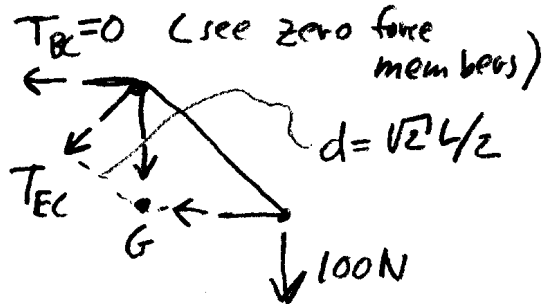 T_BC=0 (see zero force
members)
d=√2 L/2
T_EC
G
100N